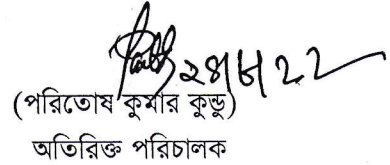 ২৪/৮/২২
(পরিতোষ কুমার কুন্ডু)
অতিরিক্ত পরিচালক